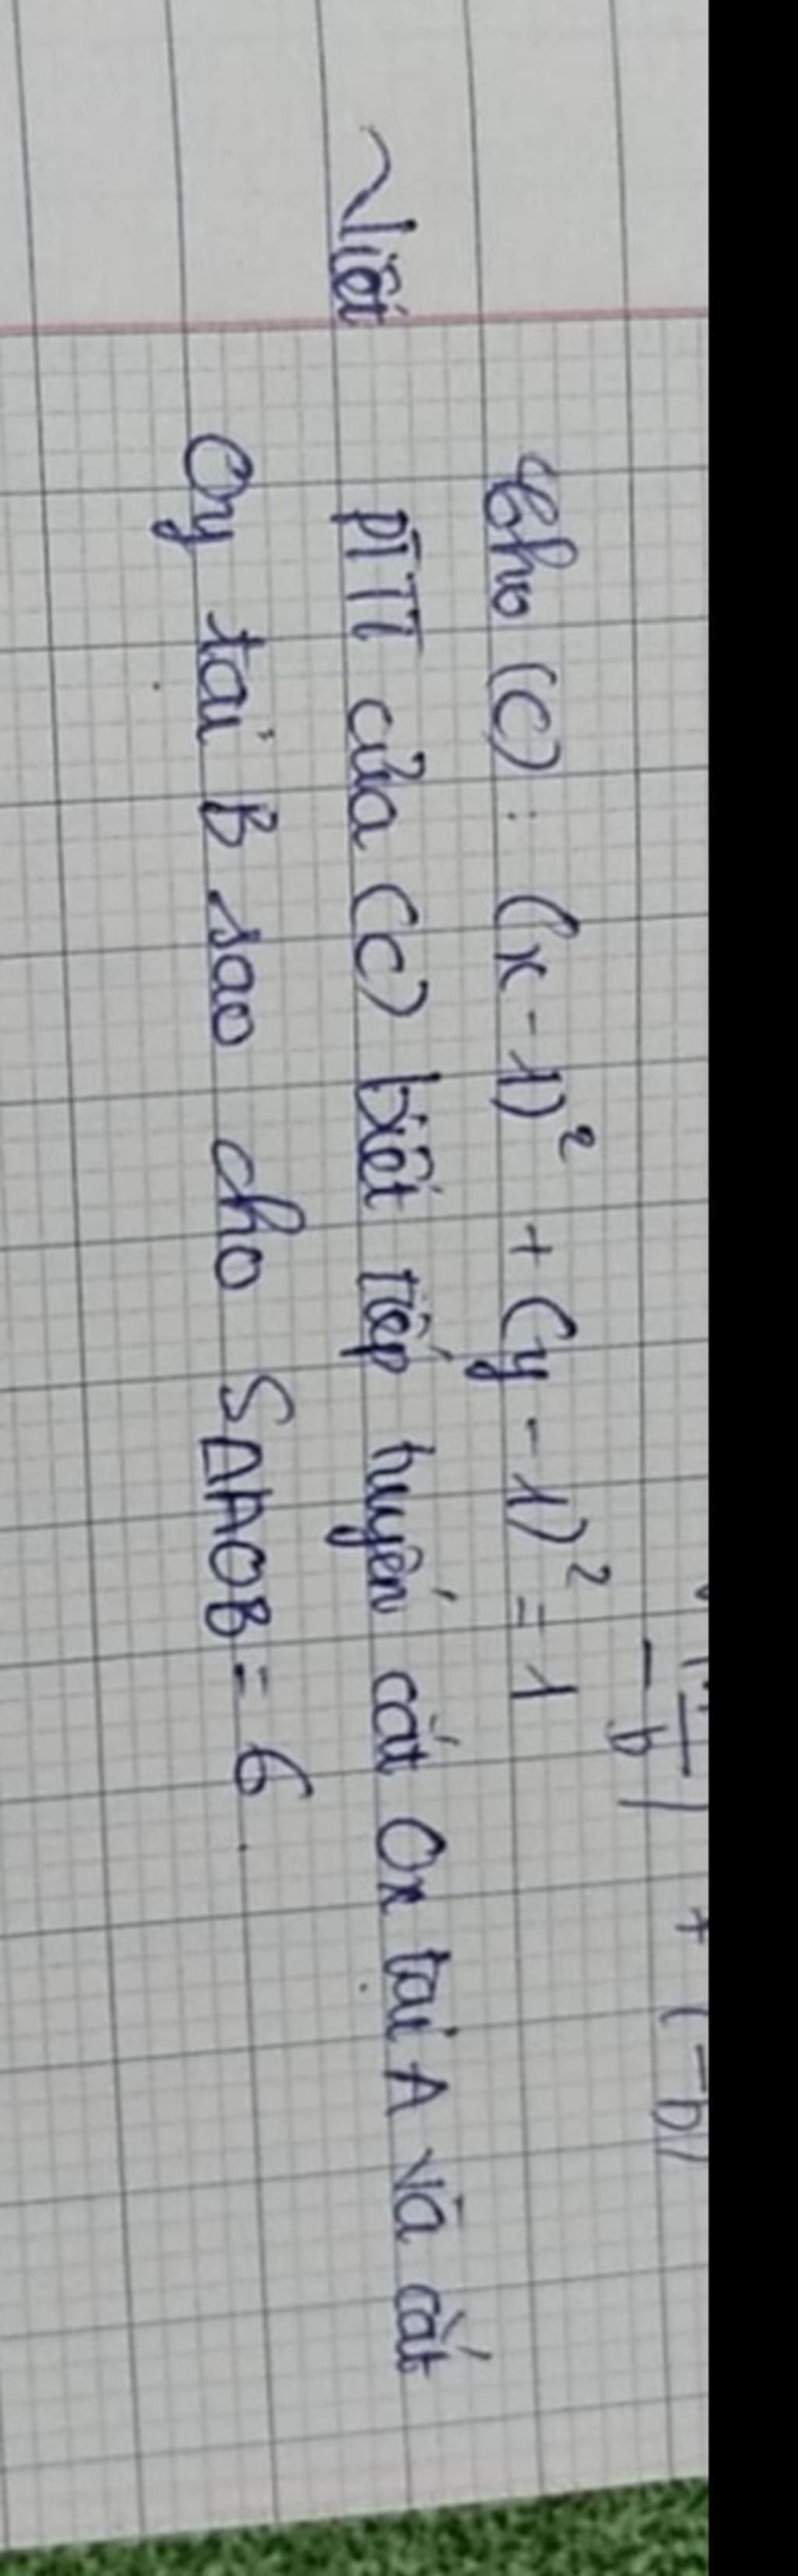 - b
+ (-b)
Cho (C) : (x - 1)² + (y - 1)² = 1
Viết PTTT của (C) biết tiếp tuyến cắt Ox tại A và cắt
Oy tại B sao cho SΔAOB = 6.